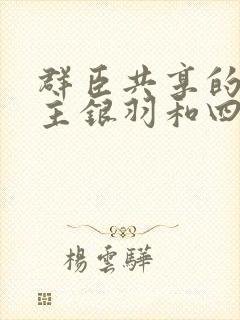 群臣共享的
主银羽和四
楊雲驊